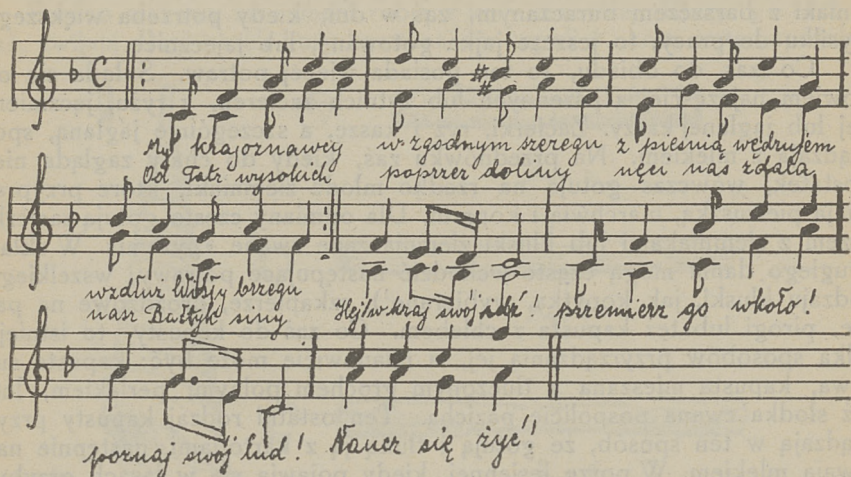 My krajoznawcy w zgodnym szeregu z pieśnią wędrujem
Od Tatr wysokich poprzez doliny nęci nas zdala
wzdłuż Wisły brzegu
nasz Bałtyk siny Hej! w kraj swój idź! przemierz go wkoło!
poznaj swój lud! Naucz się żyć!!